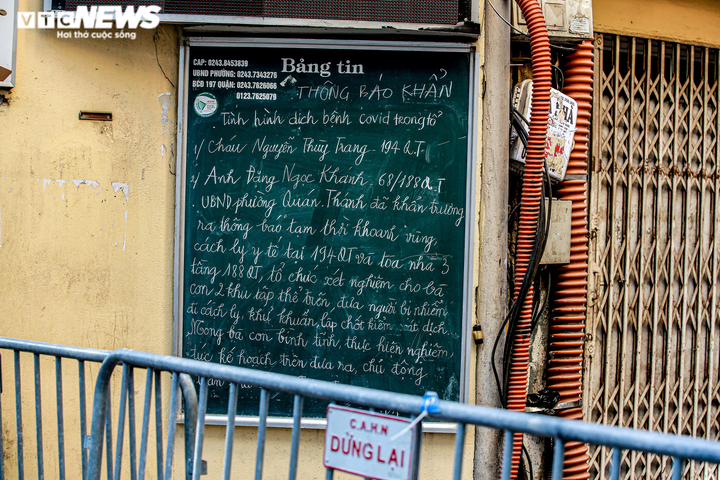 VTC NEWS
Hơi thở cuộc sống
CAP: 0243.8453839
UBND PHƯỜNG: 0243.7343276
BCĐ 197 QUẬN: 0243.7626066
0123.7625079
Bảng tin
THÔNG BÁO KHẨN
Tình hình dịch bệnh covid trong tổ
1/ Cháu Nguyễn Thùy Trang - 194 Q.T
2/ Anh Đặng Ngọc Khánh - 68/188 Q.T
. UBND phường Quán Thánh đã khẩn trương
ra thông báo tạm thời khoanh vùng,
cách ly y tế tại 194 QT và tòa nhà 3
tầng 188 QT, tổ chức xét nghiệm cho bà
con 2 khu tập thể trên, đưa người bị nhiễm
đi cách ly, khử khuẩn, lập chốt kiểm soát dịch.
Mong bà con bình tĩnh, thực hiện nghiêm
túc kế hoạch trên đưa ra, chủ động
C.A.H.N
DỪNG LẠI